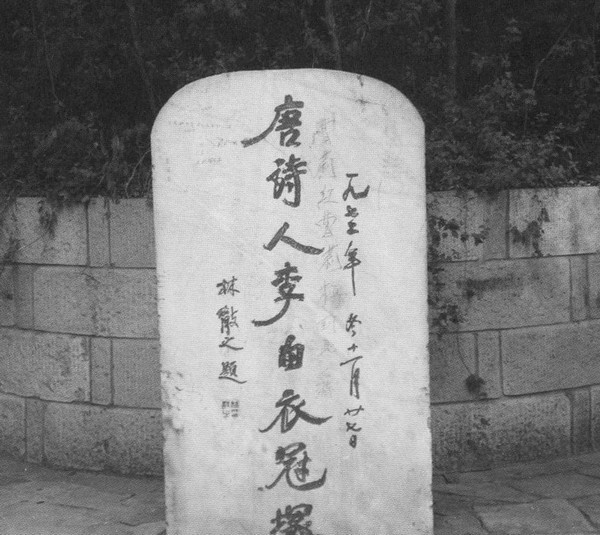 一九七三年 冬十一月廿七日
唐詩人李白衣冠塚
林散之題